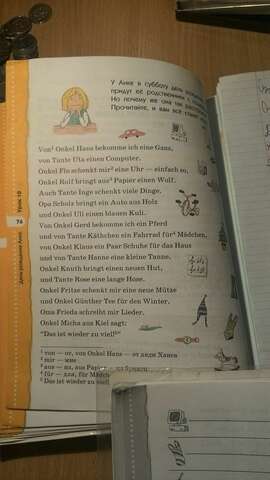 У Анны в субботу день
придут её родственники
Но почему же она так
Прочитайте, и вам всё станет
Von¹ Onkel Hans bekomme ich eine Gans,
von Tante Uta einen Computer.
Onkel Flo schenkt mir² eine Uhr — einfach so,
Onkel Rolf bringt aus³ Papier einen Wolf.
Auch Tante Inge schenkt viele Dinge.
Opa Scholz bringt ein Auto aus Holz
und Onkel Uli einen blauen Kuli.
Von Onkel Gerd bekomme ich ein Pferd
und von Tante Käthchen ein Fahrrad für⁴ Mädchen,
von Onkel Klaus ein Paar Schuhe für das Haus
und von Tante Hanne eine kleine Tanne.
Onkel Knuth bringt einen neuen Hut,
und Tante Rose eine lange Hose.
Onkel Fritze schenkt mir eine neue Mütze
und Onkel Günther Tee für den Winter.
Oma Frieda schreibt mir Lieder.
Onkel Micha aus Kiel sagt:
"Das ist wieder zu viel!⁵"
¹ von — от, von Onkel Hans — от дяди Ханса
² mir — мне
³ aus — из, aus Papier — из бумаги
⁴ für — для, für Mädchen
⁵ Das ist wieder zu viel
Урок 10
74
День рождения Анны